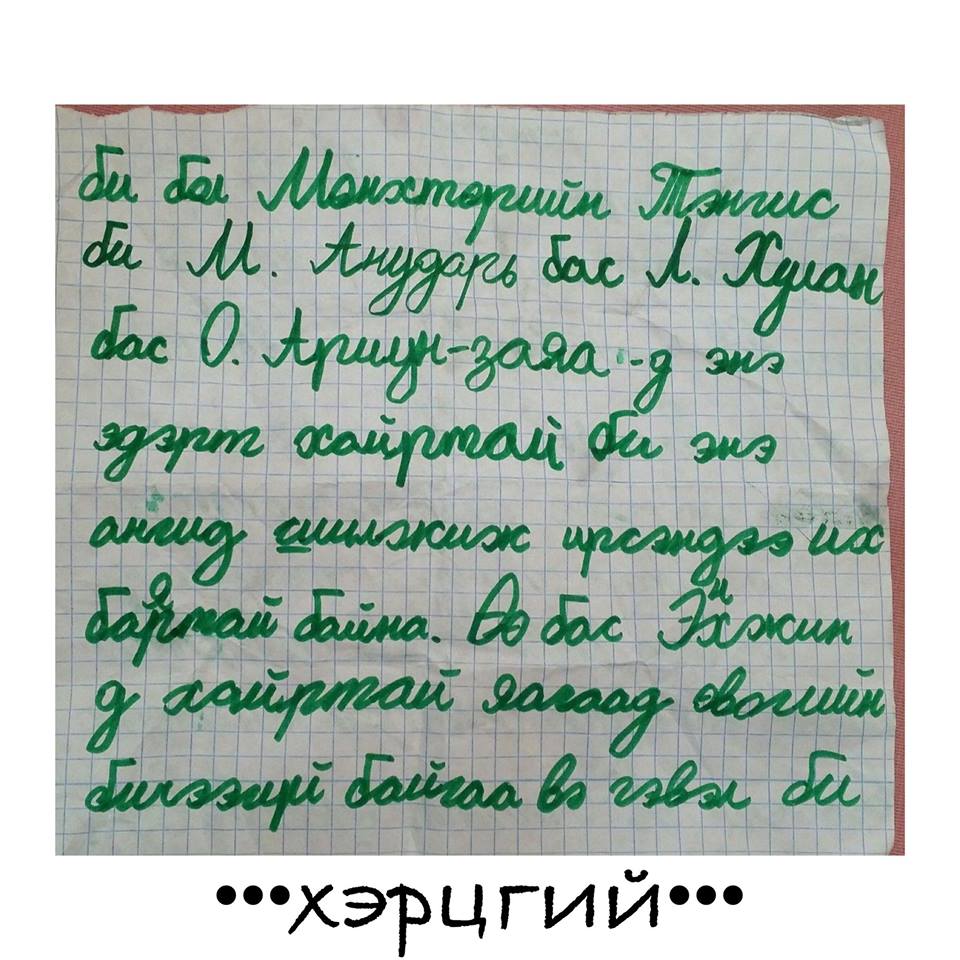 би бол Мөнхтөрийн Тэнгис
би М. Анударь бас Л. Хулан
бас О. Ариун-заяа -д энэ
эдэрт хайртай би энэ
ангид шилжиж ирсэндээ их
баяртай байна. бас Энхжин
д хайртай яагаад овогийн
бичээгүй байгаа вэ гэвэл би
•••хэрцгий•••